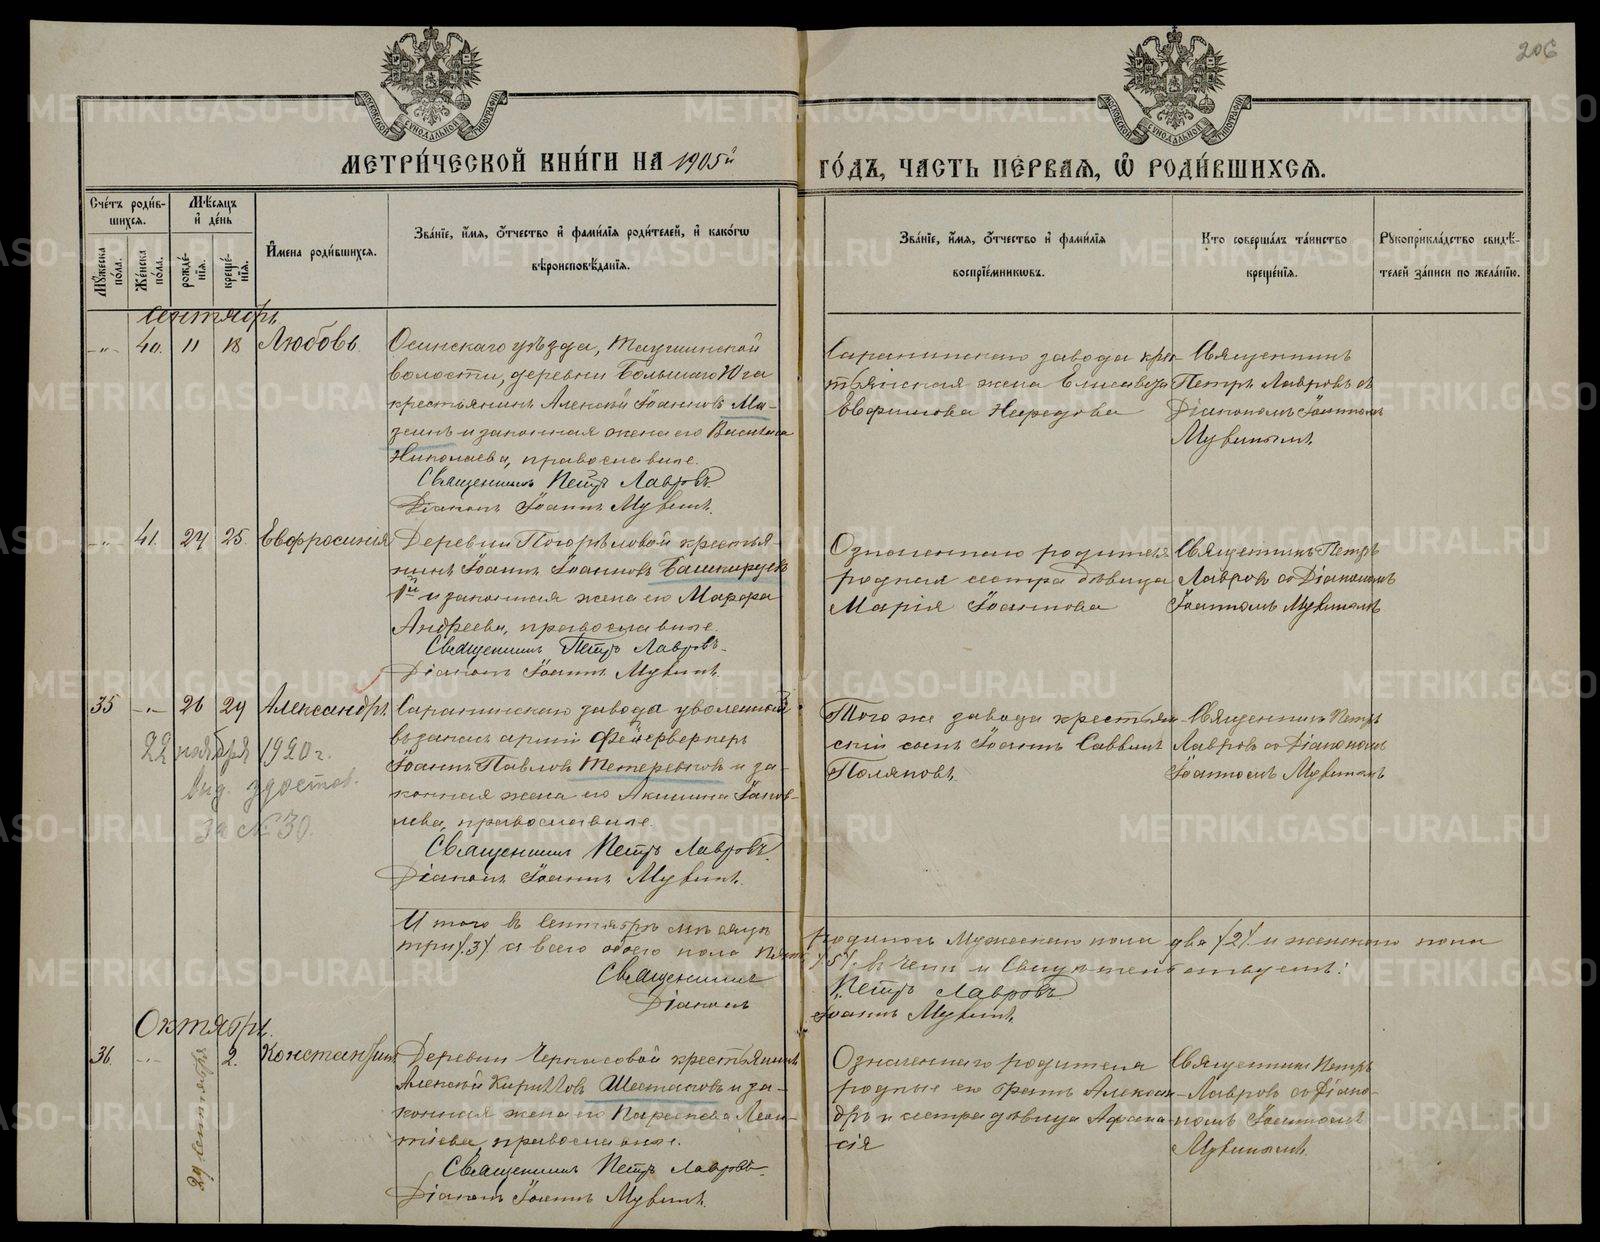 206
МЕТРИ́ЧЕСКОЙ КНИ́ГИ НА 1905й ГО́ДЪ, ЧАСТЬ ПЕ́РВАЯ, Ѡ҆ РОДИ́ВШИХСЯ.
Сче́тъ роди́в-
шихся.
Мѣ́сяцъ
и҆ де́нь
Мꙋ́жеска по́ла.
Же́нска по́ла.
рожде́-
нїѧ.
креще́-
нїѧ.
И҆мена роди́вшихся.
Зва́нїе, и҆́мя, ѻ҆́тчество и҆ фами́лїя роди́телей, и҆ како́гѡ
вѣроисповѣ́данїѧ.
Зва́нїе, и҆́мя, ѻ҆́тчество и҆ фами́лїя
воспрїе́мниковъ.
Кто̀ соверша́лъ та́инство
креще́нїѧ.
Рꙋкоприкла́дство свидѣ́-
телей за́писи по жела́нїю.
Сентябрь
-„- 40. 11 18 Любовь
Осинскаго уѣзда,
волости, деревни Большаго Юга
крестьянинъ Алексѣй Іоанновъ Ма-
зеинъ и законная жена его Василиса
Николаева, православные.
Священникъ Петръ Лавровъ.
Діаконъ Іоаннъ Мувинъ.
Саранинскаго завода кре-
стьянская жена Елисавета
Евфимова
Священникъ
Петръ Лавровъ съ
Діакономъ Іоанномъ
Мувинымъ.
-„- 41. 24 25. Евфросинія
Деревни Погорѣловой крестья-
нинъ Іоаннъ Іоанновъ Башкирцевъ
1й и законная жена его Марфа
Андреева, православные.
Священникъ Петръ Лавровъ.
Діаконъ Іоаннъ Мувинъ.
Означеннаго родителя
родная сестра дѣвица
Марія Іоаннова
Священникъ Петръ
Лавровъ съ Діакономъ
Іоанномъ Мувинымъ
35 -„- 26 29 Александръ
22 ноября 1920 г.
выд. удостов.
за № 30.
Саранинскаго завода уволенный
въ запасъ арміи фейерверкеръ
Іоаннъ Павловъ Тетеревковъ и за-
конная жена его Акилина Іаков-
лева, православные.
Священникъ Петръ Лавровъ.
Діаконъ Іоаннъ Мувинъ.
Того же завода крестьян-
скій сынъ Іоаннъ Саввинъ
Поляковъ
Священникъ Петръ
Лавровъ съ Діакономъ
Іоанномъ Мувинымъ
Итого въ Сентябрѣ мѣсяцѣ родилось мужескаго пола два /2/ и женскаго пола
три /3/ а всего обоего пола пять /5/, въ чемъ и свидѣтельствуемъ:
Священникъ Петръ Лавровъ
Діаконъ Іоаннъ Мувинъ.
Октябрь.
36. -„- 29 Сентября 2. Константинъ
Деревни Черкасовой крестьянинъ
Алексѣй Кирилловъ Шестаковъ и за-
конная жена его Параскева Леон-
тіева, православные.
Священникъ Петръ Лавровъ.
Діаконъ Іоаннъ Мувинъ.
Означеннаго родителя
родные его братъ Алексан-
дръ и сестра дѣвица Афана-
сія
Священникъ Петръ
Лавровъ съ Діако-
номъ Іоанномъ
Мувинымъ.
METRIKI.GASO-URAL.RU